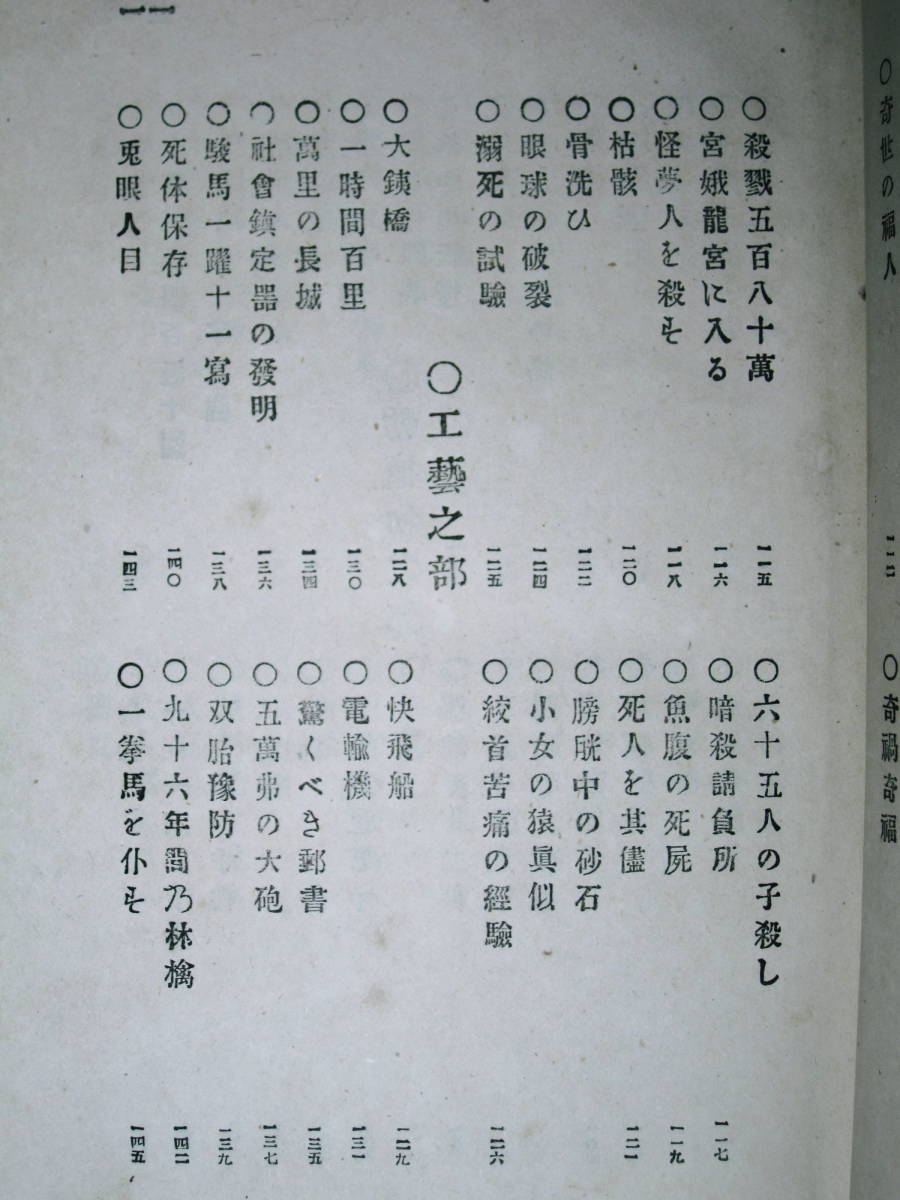 ○奇世の福人
○奇禍奇福
一一
○殺戮五百八十萬 一一五
○六十五人の子殺し
○宮娥龍宮に入る 一一六
○暗殺請負所 一一七
○怪夢人を殺す 一一八
○魚腹の死屍 一一九
○枯骸 一二〇
○死人を其儘 一二一
○骨洗ひ 一二二
○膀胱中の砂石
○眼球の破裂 一二四
○小女の猿眞似
○溺死の試驗 一二五
○絞首苦痛の經驗 一二六
○工藝之部
○大銕橋 一二八
○快飛船 一二九
○一時間百里 一三〇
○電輸機 一三一
○萬里の長城 一三四
○驚くべき郵書 一三五
○社會鎮定器の發明 一三六
○五萬弗の大砲 一三七
○駿馬一躍十一寫 一三八
○双胎豫防 一三九
○死体保存 一四〇
○九十六年間乃林檎 一四二
○兎眼人目 一四三
○一拳馬を仆す 一四五